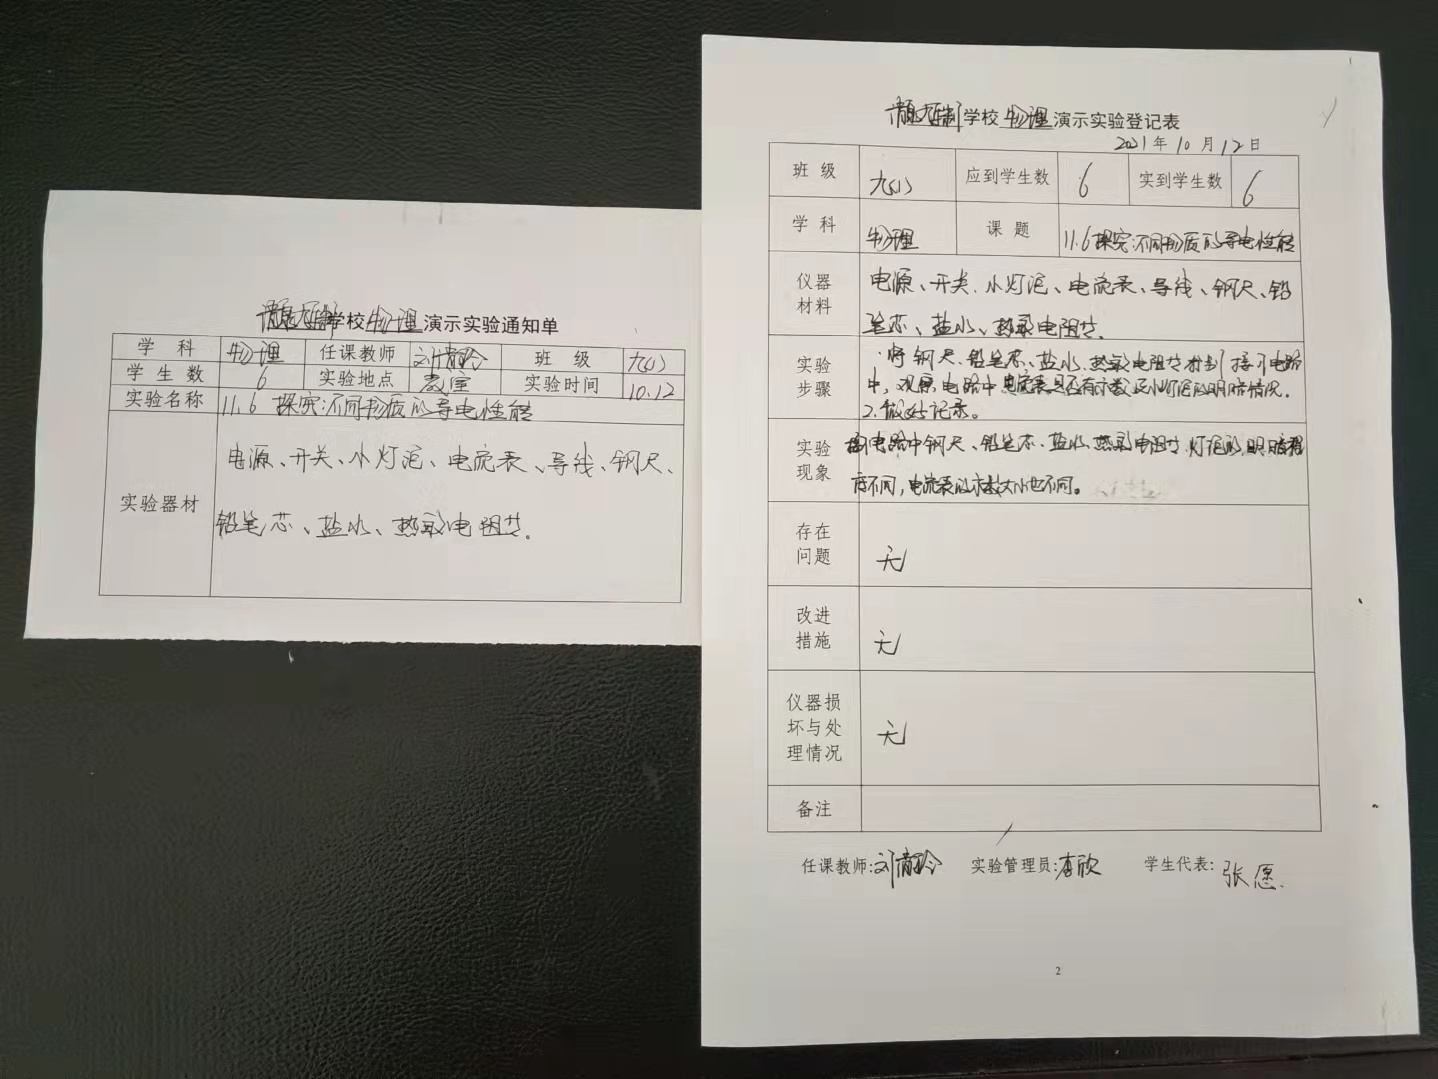 学校物理演示实验通知单
学科 物理 任课教师 刘青玲 班级 九(1)
学生数 6 实验地点 教室 实验时间 10.12
实验名称 11.6 探究:不同物质的导电性能
实验器材 电源、开关、小灯泡、电流表、导线、钢尺、
铅笔芯、盐水、热敏电阻等.
学校物理演示实验登记表
2021年10月12日
班级 九(1) 应到学生数 6 实到学生数 6
学科 物理 课题 11.6探究:不同物质的导电性能
仪器材料 电源、开关、小灯泡、电流表、导线、钢尺、铅
笔芯、盐水、热敏电阻等.
实验步骤 1.将钢尺、铅笔芯、盐水、热敏电阻等分别接入电路
中,观察电路中电流表是否有示数及小灯泡的明暗情况.
2.做好记录。
实验现象 电路中钢尺、铅笔芯、盐水、热敏电阻等,灯泡的明暗程
度不同,电流表的示数大小也不同。
存在问题 无
改进措施 无
仪器损坏与处理情况 无
备注
任课教师:刘青玲 实验管理员:李欣 学生代表:张愿.
2